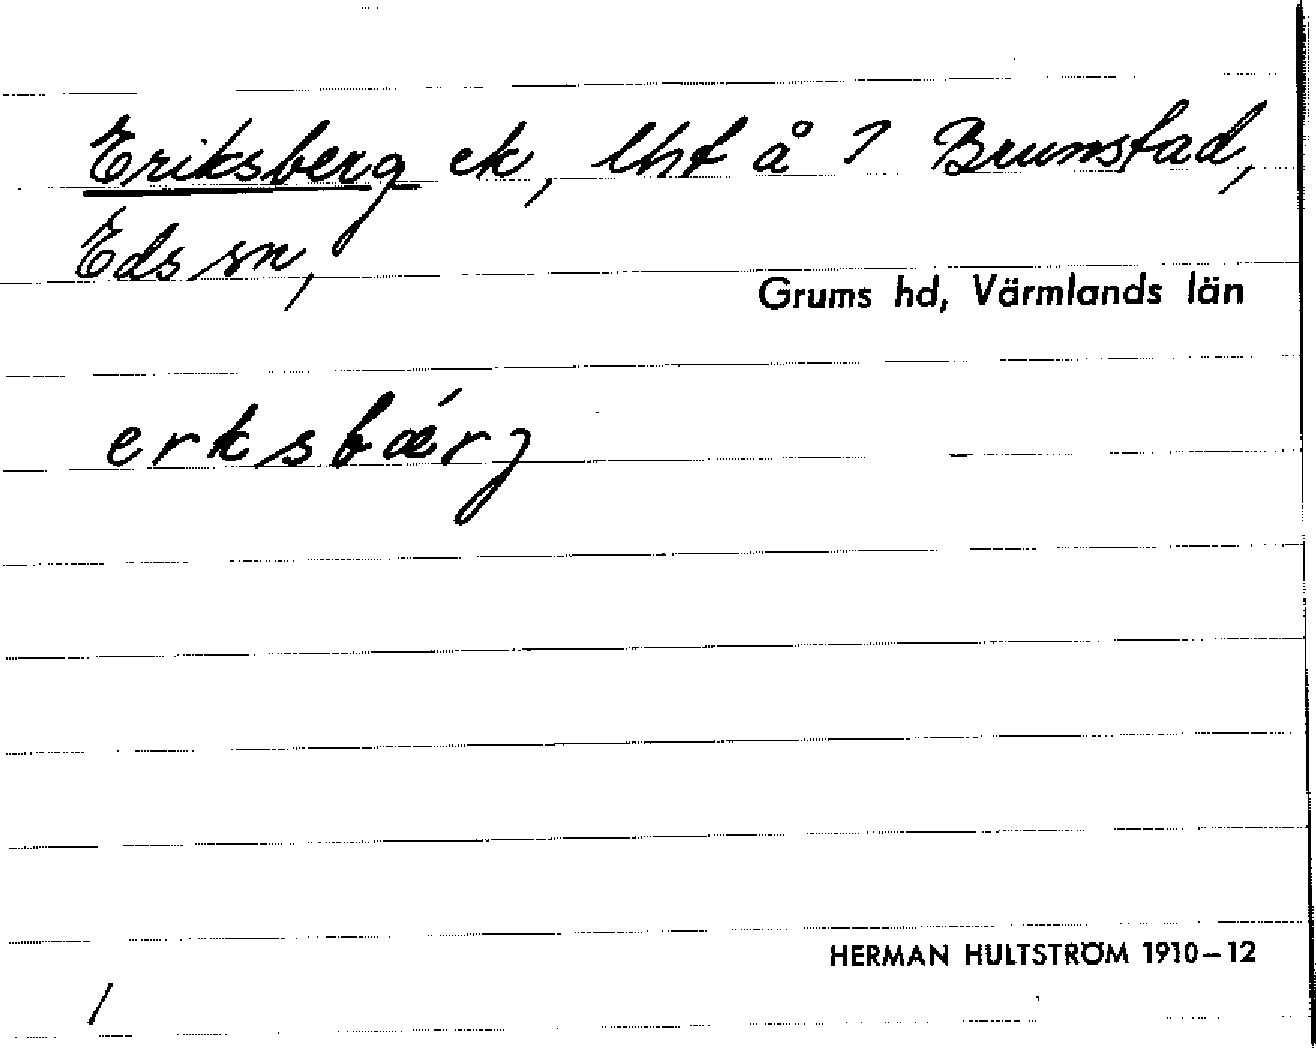 Eriksberg ck, lht å ? Brumstad,
Eds sn,
Grums hd, Värmlands län
erksbǽrj
HERMAN HULTSTRÖM 1910–12
/